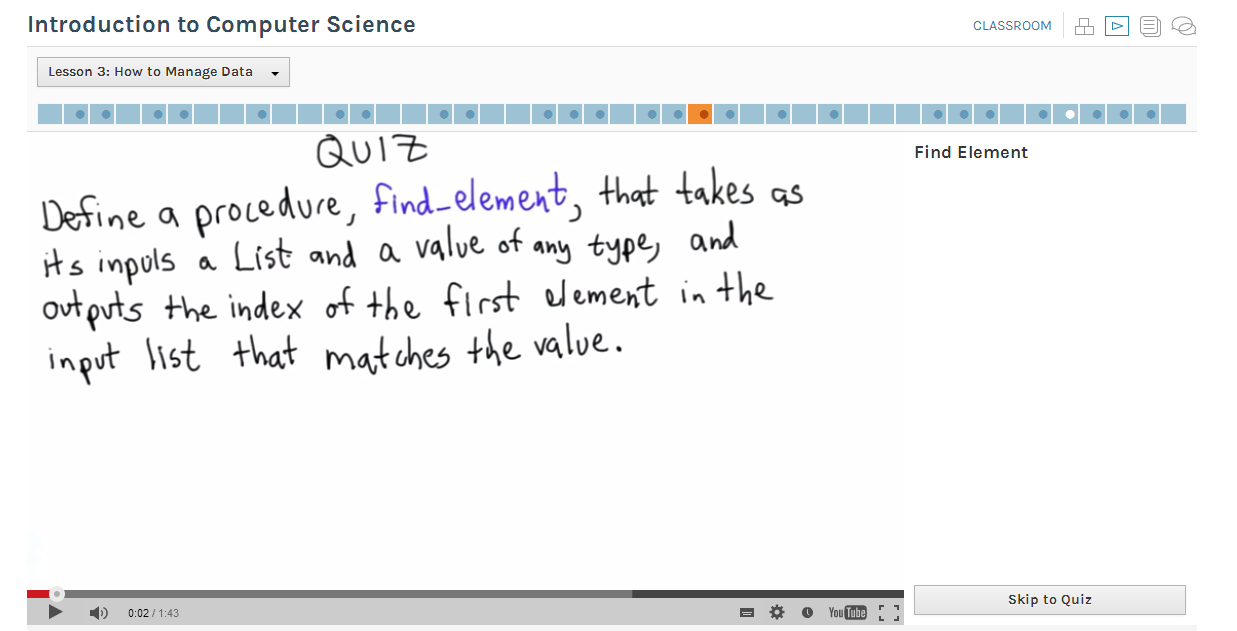 Introduction to Computer Science
CLASSROOM
Lesson 3: How to Manage Data
QUIZ
Find Element
Define a procedure, find_element, that takes as
its inputs a List and a value of any type, and
outputs the index of the first element in the
input list that matches the value.
Skip to Quiz
0:02 / 1:43
YouTube